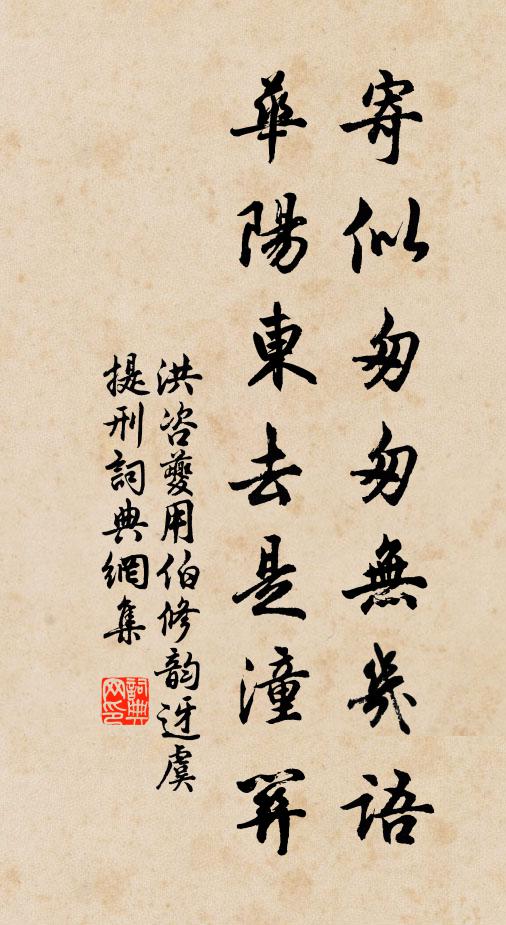 寄似匆匆無幾語
華陽東去是潼關
洪咨夔用伯修韵迓虞
提刑詞典網集
詞典网印